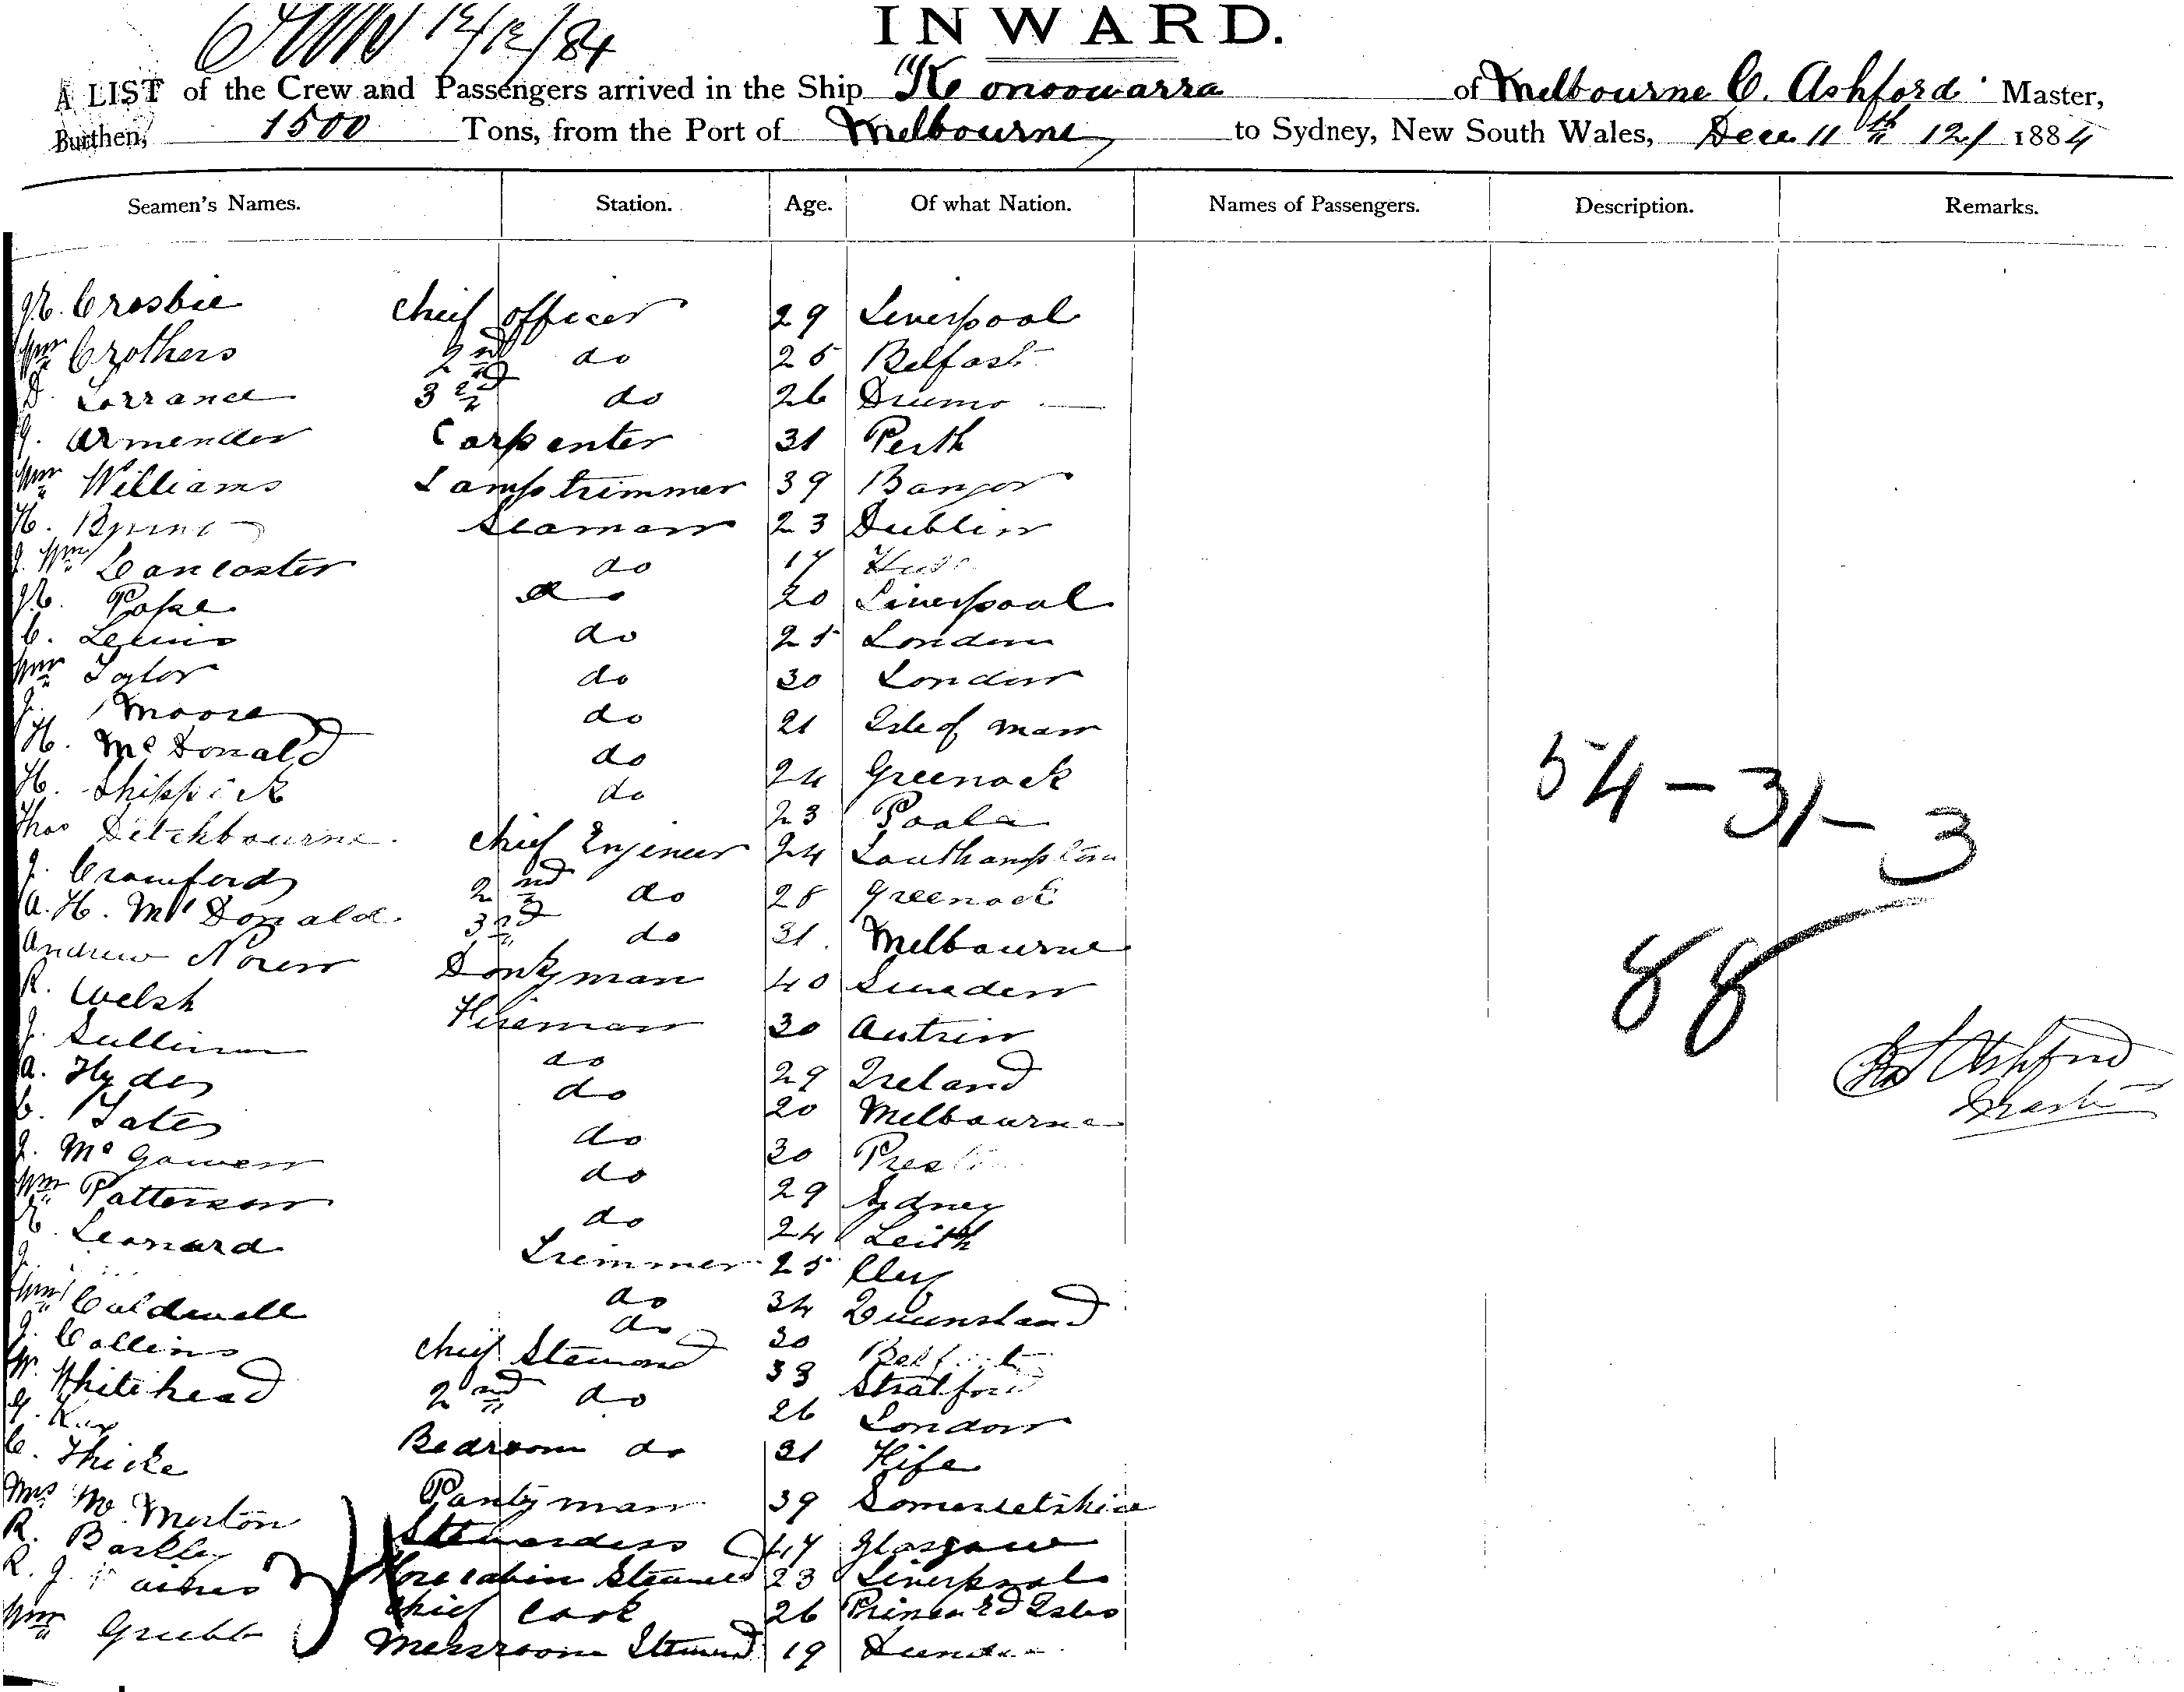 12/12/84
INWARD.
A LIST of the Crew and Passengers arrived in the Ship "Konoowarra of Melbourne C. Ashford Master,
Burthen, 1500 Tons, from the Port of Melbourne to Sydney, New South Wales, Dec 11th 12/ 1884
Seamen's Names. Station. Age. Of what Nation. Names of Passengers. Description. Remarks.
Crosbie Chief officer 29 Liverpool
Wm Crothers 2nd do 25 Belfast
D. Lorrance 3rd do 26
J. Armender Carpenter 31 Perth
Wm Williams Lamptrimmer 39 Bangor
H. Byrne Seaman 23 Dublin
J. Wm Lancaster do 17 Hull
Pope do 20 Liverpool
C. Lewis do 25 London
Wm Taylor do 30 London
J. Moore do 21 Isle of man
H. McDonald do 24 Greenock
H. Shippick do 23 Poole
Thos Ditchbourne Chief Engineer 24 Southampton
J. Crawford 2nd do 28 Greenock
A. H. McDonald 3rd do 31 Melbourne
Andrew Noren Donkyman 40 Sweden
R. Welsh Fireman 30
J. Sullivan do 29 Ireland
A. Hyde do 20 Melbourne
C. Yates do 30 Preston
J. McGowen do 29 Sydney
Wm Patterson do 24 Leith
Leonard Trimmer 25
J. do 34 Queensland
Wm Caldwell do 30 Belfast
J. Collins Chief Steward 33 Stratford
W. Whitehead 2nd do 26 London
G. Kay Bedroom do 31 Fife
C. Thicke Pantryman 39 Somersetshire
Mrs M. Morton Stewardess 47 Glasgow
R. Barkley Forecabin Steward 23 Liverpool
R. J. Chief Cook 26 Prince Ed Isles
Wm Grubb Messroom Steward 19 Dundee
3
54 - 31 - 3
88
Ashford